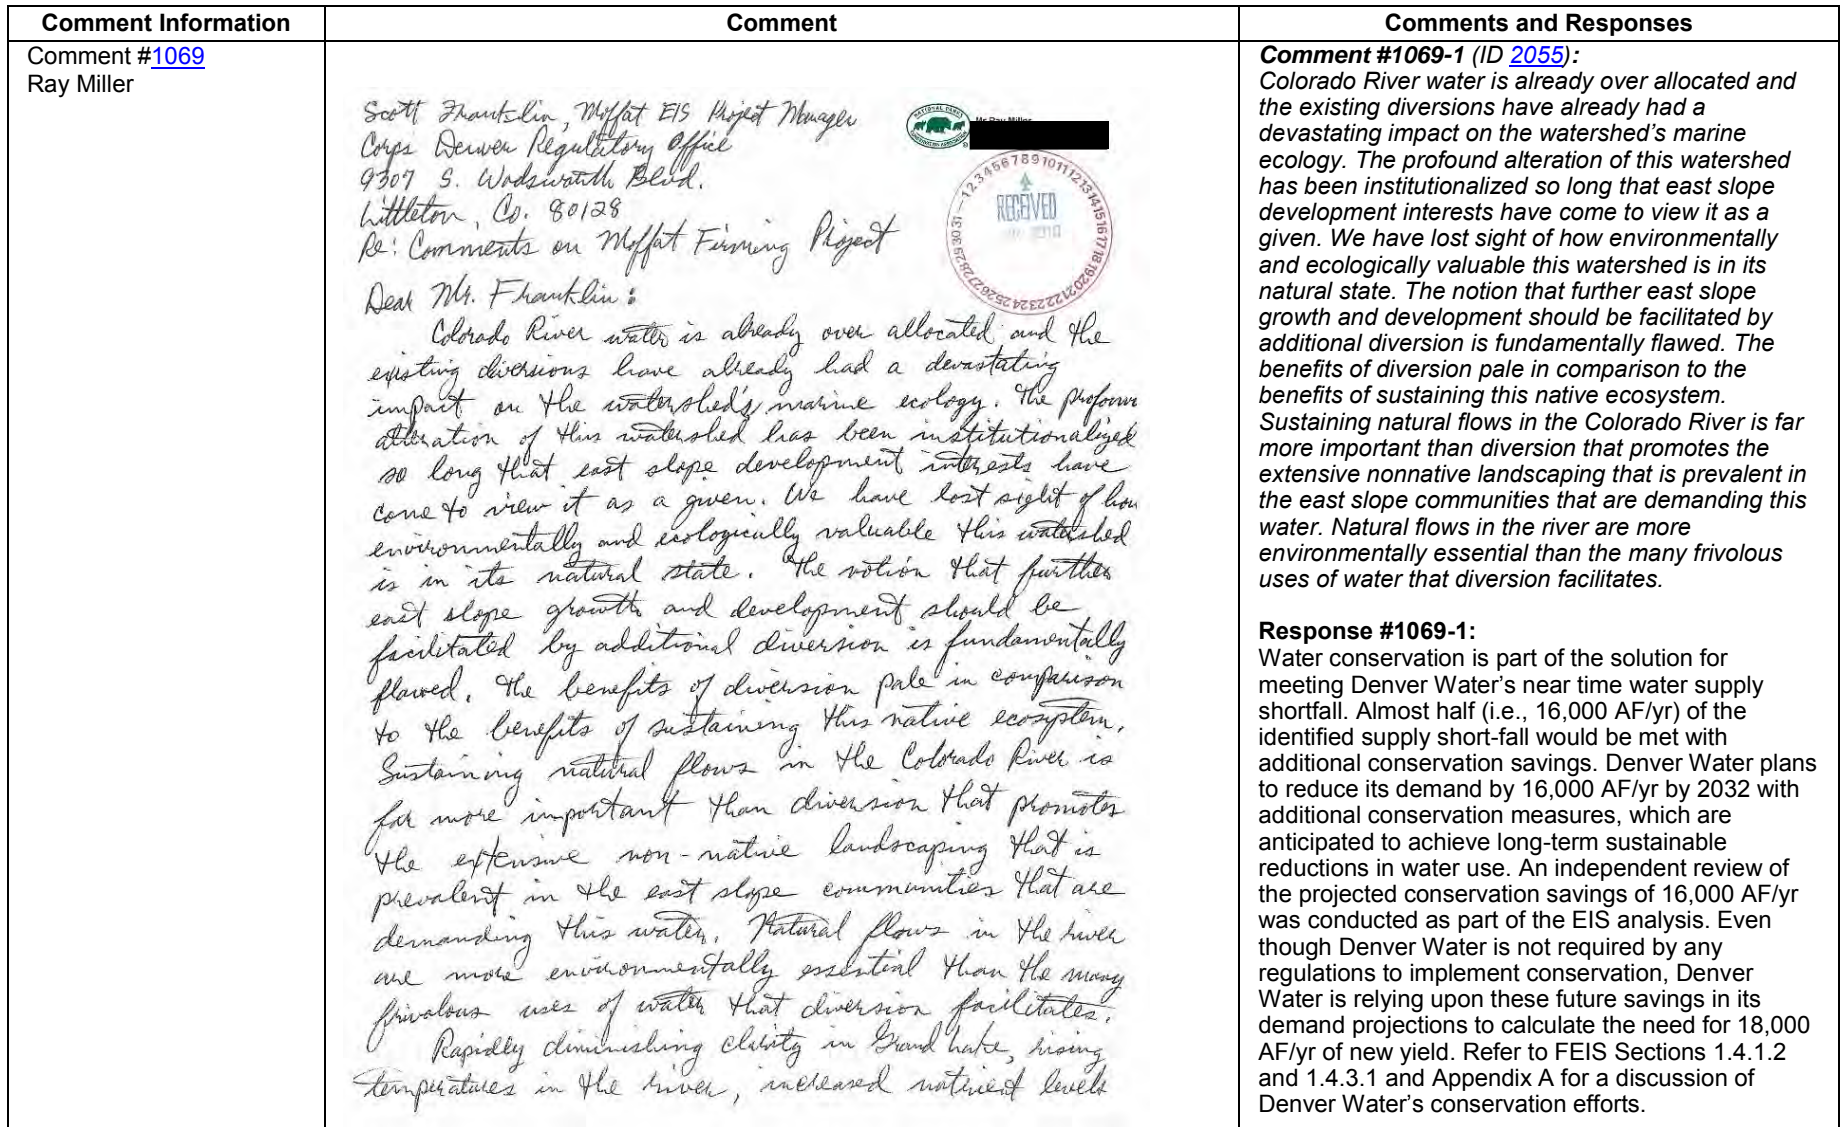 Comment Information
Comment
Comments and Responses
Comment #1069
Ray Miller
Scott Franklin, Moffat EIS Project Manager
Corps Denver Regulatory Office
9307 S. Wadsworth Blvd.
Littleton, Co. 80128
Re: Comments on Moffat Firming Project
Mr Ray Miller
RECEIVED
Dear Mr. Franklin:
Colorado River water is already over allocated and the
existing diversions have already had a devastating
impact on the watershed's marine ecology. The profoun
alteration of this watershed has been institutionalized
so long that east slope development interests have
come to view it as a given. We have lost sight of how
environmentally and ecologically valuable this watershed
is in its natural state. The notion that further
east slope growth and development should be
facilitated by additional diversion is fundamentally
flawed. The benefits of diversion pale in comparison
to the benefits of sustaining this native ecosystem.
Sustaining natural flows in the Colorado River is
far more important than diversion that promotes
the extensive non-native landscaping that is
prevalent in the east slope communities that are
demanding this water. Natural flows in the river
are more environmentally essential than the many
frivolous uses of water that diversion facilitates.
Rapidly diminishing clarity in Grand Lake, rising
temperatures in the river, increased nutrient levels
Comment #1069-1 (ID 2055):
Colorado River water is already over allocated and
the existing diversions have already had a
devastating impact on the watershed's marine
ecology. The profound alteration of this watershed
has been institutionalized so long that east slope
development interests have come to view it as a
given. We have lost sight of how environmentally
and ecologically valuable this watershed is in its
natural state. The notion that further east slope
growth and development should be facilitated by
additional diversion is fundamentally flawed. The
benefits of diversion pale in comparison to the
benefits of sustaining this native ecosystem.
Sustaining natural flows in the Colorado River is far
more important than diversion that promotes the
extensive nonnative landscaping that is prevalent in
the east slope communities that are demanding this
water. Natural flows in the river are more
environmentally essential than the many frivolous
uses of water that diversion facilitates.
Response #1069-1:
Water conservation is part of the solution for
meeting Denver Water's near time water supply
shortfall. Almost half (i.e., 16,000 AF/yr) of the
identified supply short-fall would be met with
additional conservation savings. Denver Water plans
to reduce its demand by 16,000 AF/yr by 2032 with
additional conservation measures, which are
anticipated to achieve long-term sustainable
reductions in water use. An independent review of
the projected conservation savings of 16,000 AF/yr
was conducted as part of the EIS analysis. Even
though Denver Water is not required by any
regulations to implement conservation, Denver
Water is relying upon these future savings in its
demand projections to calculate the need for 18,000
AF/yr of new yield. Refer to FEIS Sections 1.4.1.2
and 1.4.3.1 and Appendix A for a discussion of
Denver Water's conservation efforts.